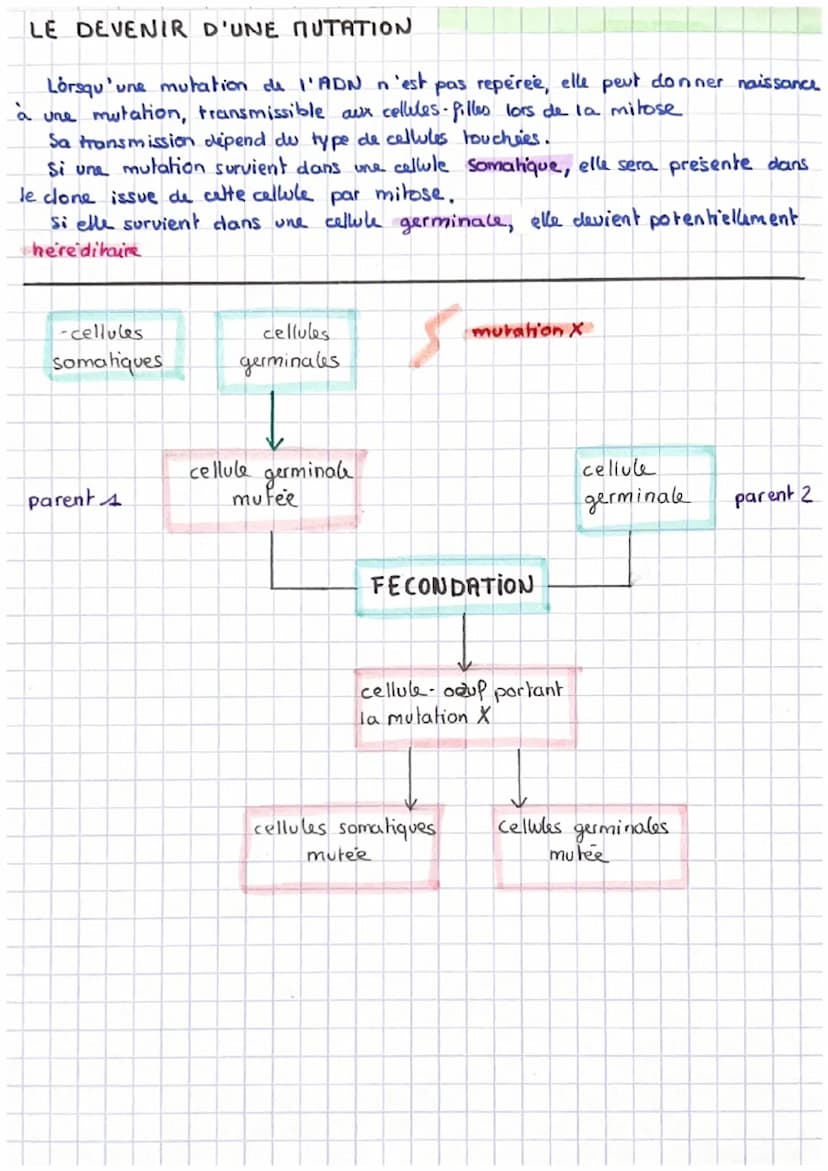 LE DEVENIR D'UNE MUTATION
Lorsqu'une mutation de l'ADN n'est pas repérée, elle peut donner naissance
à une mutation, transmissible aux cellules-filles lors de la mitose
Sa transmission dépend du type de cellules touchées.
Si une mutation survient dans une cellule somatique, elle sera présente dans
le clone issue de cette cellule par mitose.
Si elle survient dans une cellule germinale, elle devient potentiellement
héréditaire
-cellules
somatiques
cellules
germinales
mutation X
cellule germinale
mutée
parent 1
cellule
germinale
parent 2
FECONDATION
cellule-oeuf portant
la mutation X
cellules somatiques
mutée
cellules germinales
mutée